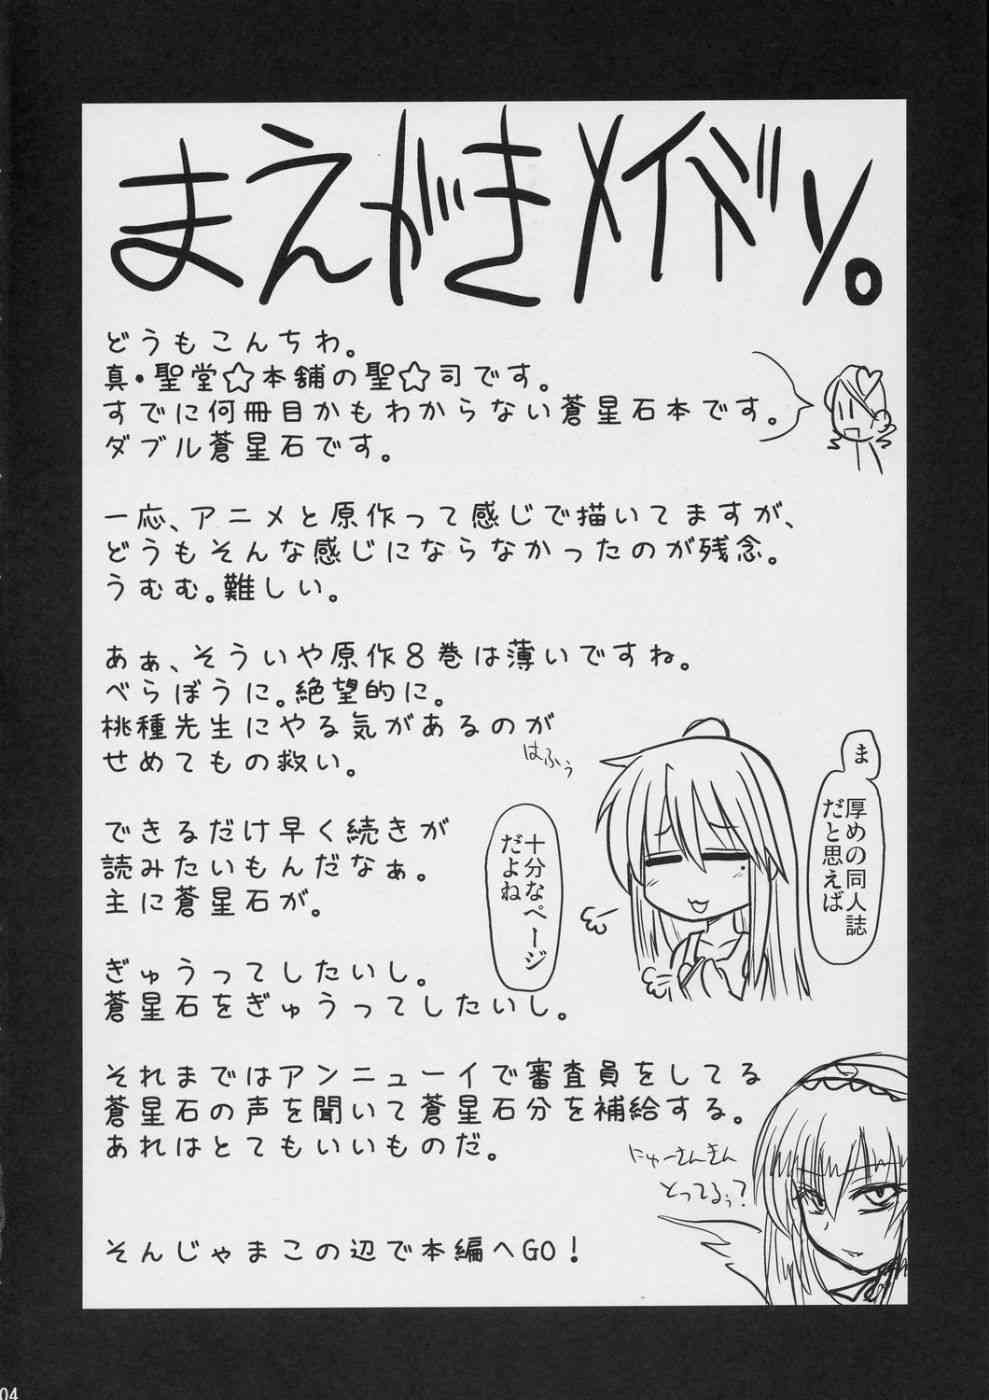 まえがきメイドリ。
どうもこんちわ。
真・聖堂☆本舗の聖☆司です。
すでに何冊目かもわからない蒼星石本です。
ダブル蒼星石です。
一応、アニメと原作って感じで描いてますが、
どうもそんな感じにならなかったのが残念。
うむむ。難しい。
あぁ、そういや原作8巻は薄いですね。
べらぼうに。絶望的に。
桃種先生にやる気があるのが
せめてもの救い。
はふぅ
ま
厚めの同人誌
だと思えば
十分なページ
だよね
できるだけ早く続きが
読みたいもんだなぁ。
主に蒼星石が。
ぎゅうってしたいし。
蒼星石をぎゅうってしたいし。
それまではアンニューイで審査員をしてる
蒼星石の声を聞いて蒼星石分を補給する。
あれはとてもいいものだ。
にゅーさんきん
とってるぅ?
そんじゃまこの辺で本編へGO!
04